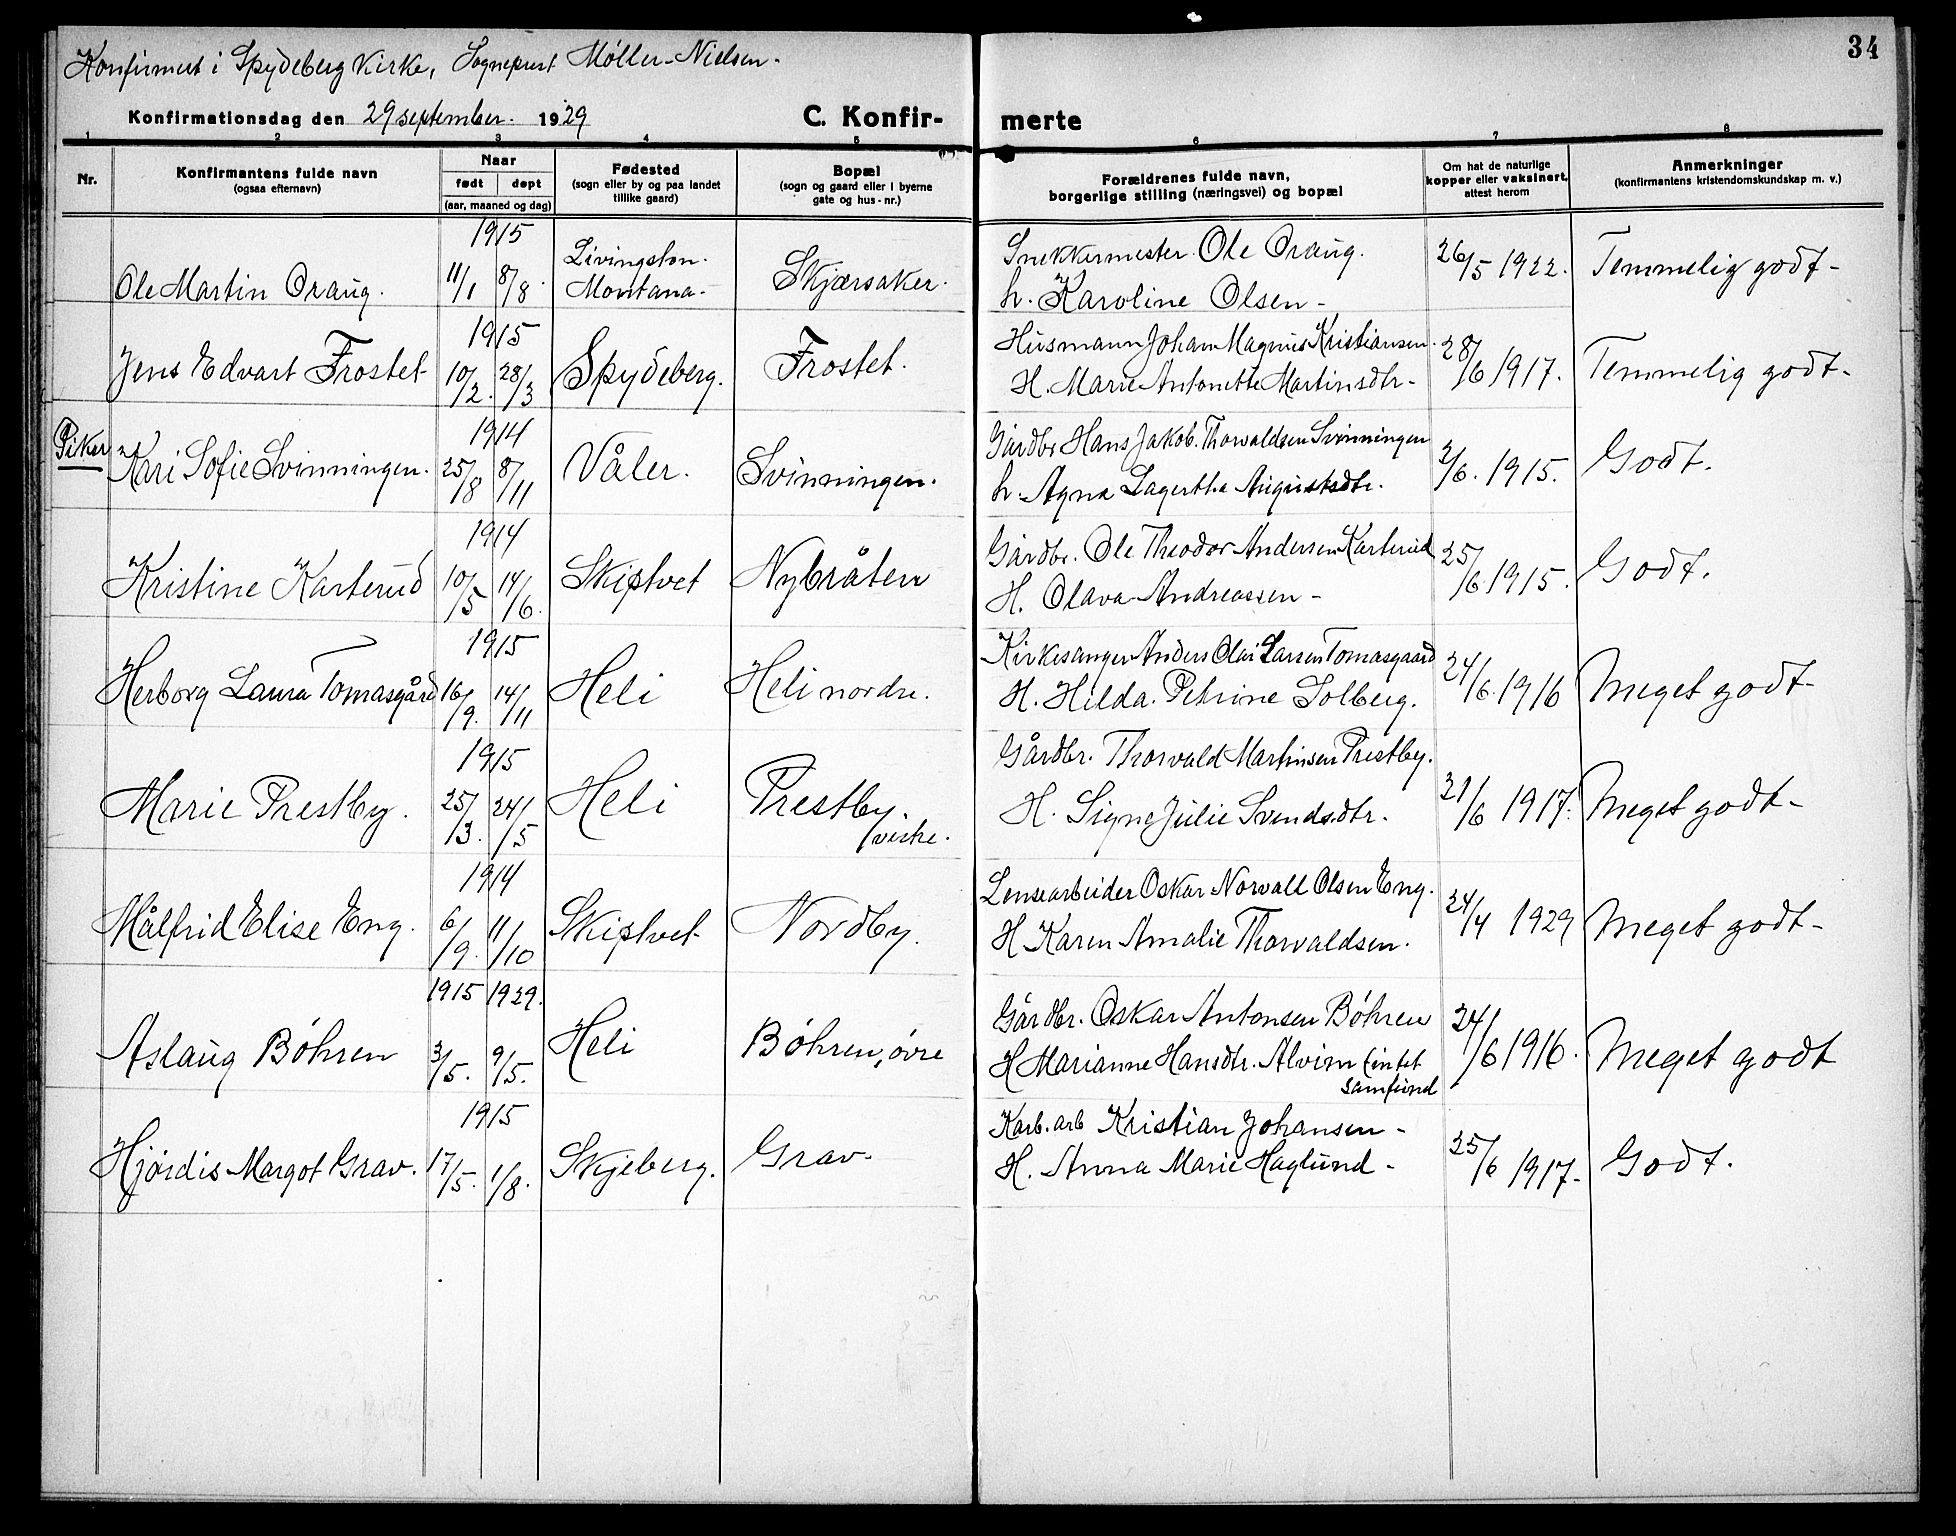 34
Konfirmert i Spydeberg Kirke, Sogneprest Møller-Nielsen.
Konfirmationsdag den 29 september. 1929
C. Konfirmerte
1 2 3 4 5 6 7 8
Nr.
Konfirmantens fulde navn
(ogsaa efternavn)
Naar
født døpt
(aar, maaned og dag)
Fødested
(sogn eller by og paa landet
tillike gaard)
Bopæl
(sogn og gaard eller i byerne
gate og hus-nr.)
Forældrenes fulde navn,
borgerlige stilling (næringsvei) og bopæl
Om hat de naturlige
kopper eller vaksinert,
attest herom
Anmerkninger
(konfirmantens kristendomskundskap m. v.)
1915
Ole Martin Oraug. 11/1 8/8. Livingston. Montana- Skjærsaker. Snekkermester Ole Oraug. 26/5 1922. Temmelig godt-
h. Karoline Olsen-
1915
Jens Edvart Frostet 10/2. 28/3 Spydeberg. Frostet. Husmann Johan Magnus Kristiansen. 28/6 1917. Temmelig godt-
H. Marie Antonette Martinsdtr-
Piker
1914
Kari Sofie Svinningen. 25/8 8/11 Våler. Svinningen. Gårdbr Hans Jakob. Thorvaldsen Svinningen 2/6. 1915. Godt.
h. Agna Lagertha Augustsdtr.
1914
Kristine Karterud 10/5 14/6. Skiptvet Nybråten Gårdbr. Ole Theodor Andersen Karterud 25/6 1915. Godt.
H. Olava Andreassen-
1915
Herborg Laura Tomasgård 16/9. 14/11 Heli Heli nordre. Kirkesanger Anders Olai Larsen Tomasgaard 24/6. 1916 Meget godt-
H. Hilda. Petrine Solberg.
1915
Marie Prestby. 25/3. 24/5 Heli Prestby. vestre. Gårdbr. Thorvald Martinsen Prestby. 21/6 1917. Meget godt-
H. Signe Julie Svendsdtr.
1914
Målfrid Elise Eng. 6/9. 11/10 Skiptvet Nordby. Lensearbeider Oskar Norvall Olsen Eng. 24/4 1929 Meget godt-
H Karen Amalie Thorvaldsen.
1915 1929.
Aslaug Bøhren 3/5. 9/5. Heli Bøhren, øvre Gårdbr. Oskar Antonsen Bøhren 24/6 1916. Meget godt
H Marianne Hansdtr. Alvim (intet
samfund
1915
Hjørdis Margot Grav. 17/5. 1/8. Skjeberg. Grav. Karb. arb Kristian Johansen- 25/6 1917- Godt.
H. Anna Marie Haglund-